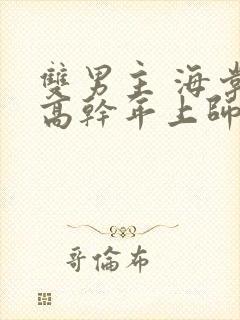 雙男主 海棠
高幹年上師
哥倫布